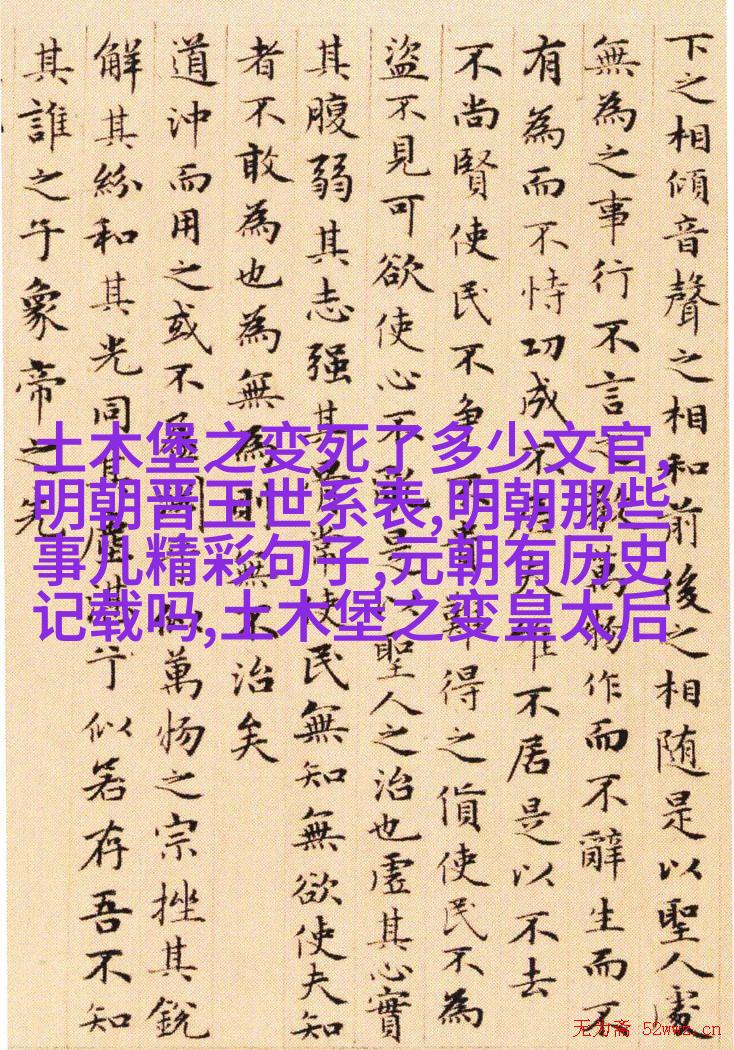 下之相傾音聲之相和前後之相随是以聖人處
無為之事行不言之教萬物作而不辭生而不
有為而不恃功成不居夫唯不居是以不去
不尚賢使民不争不貴難得之貨使民不為
盜不見可欲使心不亂是以聖人之治也虛其心實
其腹弱其志强其骨常使民無知無欲使夫知
者不敢為也為無為則無不治矣
道沖而用之或不盈淵似萬物之宗挫其銳
解其紛和其光同其塵湛兮似若存吾不知
其誰之子象帝之先
土木堡之变死了多少文官,
明朝晋王世系表,明朝那些
事儿精彩句子,元朝有历史
记载吗,土木堡之变皇太后
无为斋 52wwz.cn